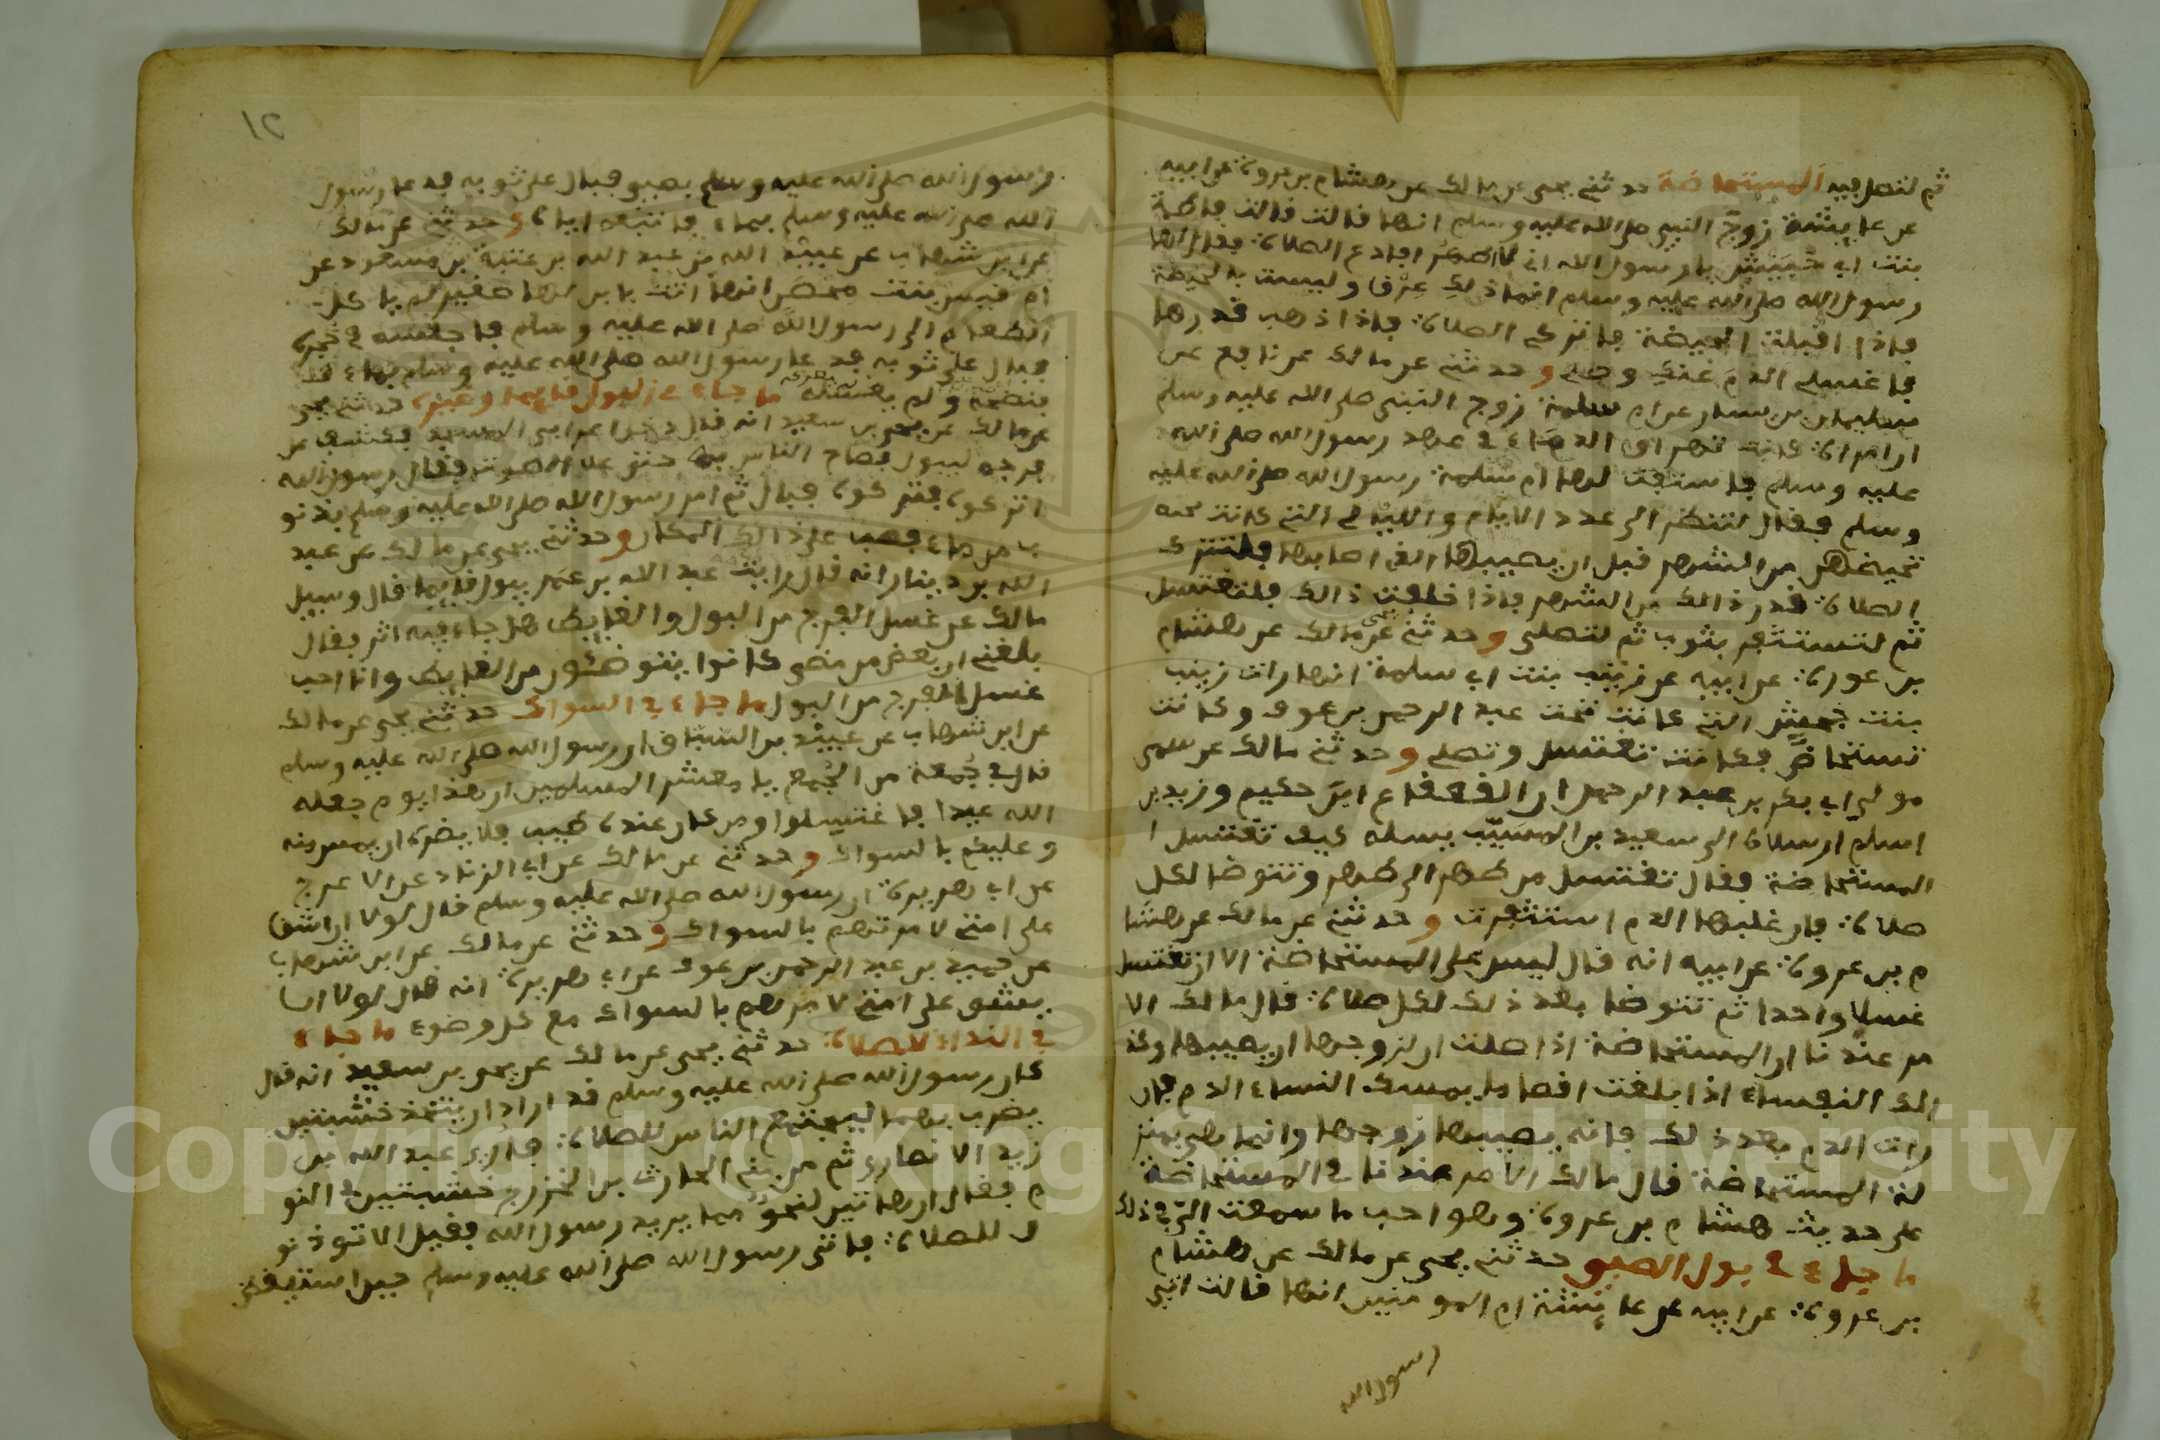 ثم لتصل فيه المستحاضة حدثني يحيى عن مالك عن هشام بن عروة عن ابيه
عن عايشة زوج النبي صلى الله عليه وسلم انها قالت قالت فاطمة
بنت ابي حبيش يا رسول الله اني لا اطهر افادع الصلاة فقال لها
رسول الله صلى الله عليه وسلم انما ذلك عرق وليست بالحيضة
فاذا اقبلت الحيضة فاتركي الصلاة فاذا ذهب قدرها
فاغسلي الدم عنك وصلي وحدثني عن مالك عن نافع عن
سليمان بن يسار عن ام سلمة زوج النبي صلى الله عليه وسلم
ان امراة كانت تهراق الدماء في عهد رسول الله صلى الله
عليه وسلم فاستفتت لها ام سلمة رسول الله صلى الله عليه
وسلم فقال لتنظر الى عدد الايام والليالي التي كانت
تحيضهن من الشهر قبل ان يصيبها الذي اصابها فلتترك
الصلاة قدر ذالك من الشهر فاذا خلفت ذالك فلتغتسل
ثم لتستثفر بثوب ثم لتصلي وحدثني عن مالك عن هشام
بن عورة عن ابيه عن زينب بنت ابي سلمة انها رات زينب
بنت جحش التي كانت تحت عبد الرحمن بن عوف وكانت
تستحاض فكانت تغتسل وتصلي وحدثني مالك عن سمي
مولى ابي بكر بن عبد الرحمن ان القعقاع ابن حكيم وزيد بن
اسلم ارسلاه الى سعيد بن المسيب يسله كيف تغتسل ا
المستحاضة فقال تغتسل من طهر الى طهر وتتوضا لكل
صلاة فان غلبها الدم استثفرت وحدثني عن مالك عن هشا
م بن عروة عن ابيه انه قال ليس على المستحاضة الا ان تغتسل
غسلا واحدا ثم تتوضا بعد ذلك لكل صلاة قال مالك الا
مر عندنا ان المستحاضة اذا صلت ان لزوجها ان يصيبها وكذ
الك النفساء اذا بلغت اقصا ما يمسك النساء الدم فان
رات الدم بعد ذلك فانه يصيبها زوجها وانما هي بمنز
لة المستحاضة قال مالك الامر عندنا في المستحاضة
على حديث هشام بن عروة وهو احب ما سمعت الي في ذلك
ما جاء في بول الصبي حدثني يحيى عن مالك عن هشام
بن عروة عن ابيه عن عايشة ام المومنين انها قالت اتي
رسول الله
١٢
رسول الله صلى الله عليه وسلم بصبي فبال على ثوبه فدعا رسول
الله صلى الله عليه وسلم بماء فاتبعه اياه وحدثني عن مالك
عن ابن شهاب عن عبيد الله بن عبد الله بن عتبة بن مسعود عن
ام قيس بنت محصن انها اتت بابن لها صغير لم ياكل
الطعام الى رسول الله صلى الله عليه وسلم فاجلسه في حجره
فبال على ثوبه فدعا رسول الله صلى الله عليه وسلم بماء
فنضحه ولم يغسله ما جاء في البول قايما وغيره حدثني يحيى
عن مالك عن يحيى بن سعيد انه قال دخل اعرابي المسجد فكشف عن
فرجه ليبول فصاح الناس به حتى علا الصوت فقال رسول الله
اتركوه فتركوه فبال ثم امر رسول الله صلى الله عليه وسلم بذنو
ب من ماء فصب على ذالك المكان وحدثني يحيى عن مالك عن عبد
الله بن دينار انه قال رايت عبد الله بن عمر يبول قايما قال وسيل
مالك عن غسل الفرج من البول والغايط هل جاء فيه اثر فقال
بلغني ان بعض من مضى كانوا يتوضئون من الغايط وانا احب
غسل الفرج من البول ما جاء في السواك حدثني يحيى عن مالك
عن ابن شهاب عن عبيد بن السباق ان رسول الله صلى الله عليه وسلم
قال في جمعة من الجمع يا معشر المسلمين ان هذا يوم جعله
الله عيدا فاغتسلوا ومن كان عنده طيب فلا يضره ان يمس منه
وعليكم بالسواك وحدثني عن مالك عن ابي الزناد عن الاعرج
عن ابي هريرة ان رسول الله صلى الله عليه وسلم قال لولا ان اشق
على امتي لامرتهم بالسواك وحدثني عن مالك عن ابن شهاب
عن حميد بن عبد الرحمن بن عوف عن ابي هريرة انه قال لولا ان
يشق على امتي لامرهم بالسواك مع كل وضوء ما جاء
في النداء للصلاة حدثني يحيى عن مالك عن يحيى بن سعيد انه قال
كان رسول الله صلى الله عليه وسلم قد اراد ان يتخذ خشبتين
يضرب بهما ليجتمع الناس للصلاة فاري عبد الله بن
زيد الانصاري ثم من بني الحارث بن الخزرج خشبتين في النو
م فقال ان هاتين لنحو مما يريد رسول الله فقيل الا توذنو
ن للصلاة فاتى رسول الله صلى الله عليه وسلم حين استيقظ
Copyright © King Saud University